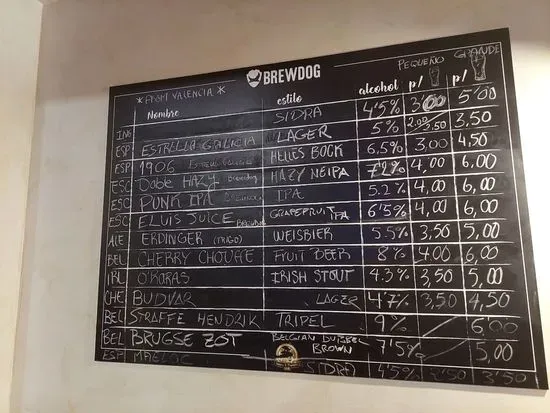 BREWDOG
PEQUEÑO GRANDE
Nombre estilo alcohol p/ p/
ING SIDRA 4'5% 3,00 5'00
ESP ESTRELLA GALICIA LAGER 5% 2,00 2,50 3,50
ESP 1906 HELLES BOCK 6,5% 3,00 4,50
ESC Doble HAZY Brewdog HAZY NEIPA 7,2% 4,00 6,00
ESC PUNK IPA IPA 5.2% 4,00 6,00
ESC ELVIS JUICE BREWDOG GRAPEFRUIT IPA 6'5% 4,00 6,00
ALE ERDINGER (TRIGO) WEISBIER 5.5% 3,50 5,00
BEL CHERRY CHOUFFE FRUIT BEER 8% 4,00 6,00
IRL O'HORAS IRISH STOUT 4.3% 3,50 5,00
CHE BUDVAR LAGER 4'7% 3,50 4,50
BEL STRAFFE HENDRIK TRIPEL 9% 6,00
BEL BRUGSE ZOT BELGIAN DUBBEL BROWN 7'5% 5,00
ESP MAELOC SIDRA 4'5% 2'50 3'50